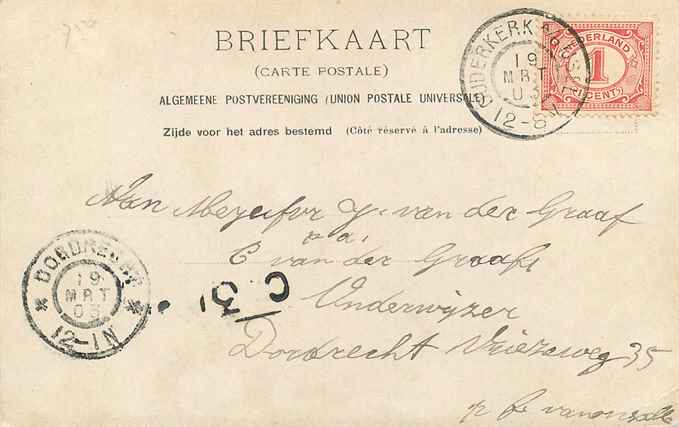 BRIEFKAART
(CARTE POSTALE)
ALGEMEENE POSTVEREENIGING (UNION POSTALE UNIVERSELLE)
Zijde voor het adres bestemd (Côté réservé à l'adresse)
OUDERKERK A/D IJSSEL
19
MRT
03
12-8V
NEDERLAND
1
CENT
Aan Mejufvr J. van der Graaf
p. a.
C van der Graaf
Onderwijzer
Dordrecht Vriezeweg 35
DORDRECHT
19
MRT
03
12-1N
C 3